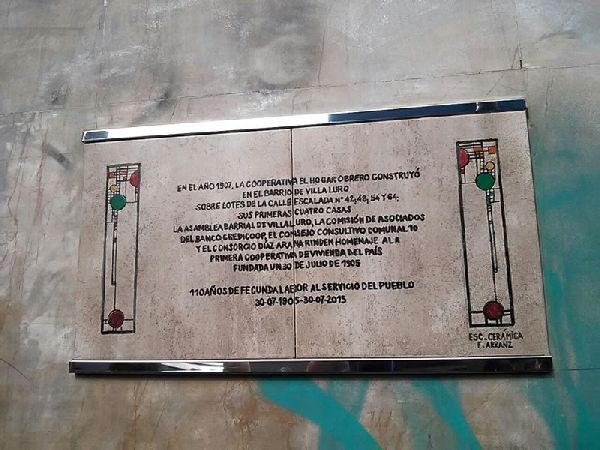 EN EL AÑO 1907, LA COOPERATIVA EL HOGAR OBRERO CONSTRUYÓ
EN EL BARRIO DE VILLA LURO
SOBRE LOTES DE LA CALLE ESCALADA Nº 42, 48, 54 Y 64,
SUS PRIMERAS CUATRO CASAS
LA ASAMBLEA BARRIAL DE VILLA LURO, LA COMISIÓN DE ASOCIADOS
DEL BANCO CREDICOOP, EL CONSEJO CONSULTIVO COMUNAL 10
Y EL CONSORCIO DÍAZ ARANA RINDEN HOMENAJE A LA
PRIMERA COOPERATIVA DE VIVIENDA DEL PAÍS
FUNDADA UN 30 DE JULIO DE 1905
110 AÑOS DE FECUNDA LABOR AL SERVICIO DEL PUEBLO
30-07-1905-30-07-2015
ESC. CERÁMICA
F. ARRANZ